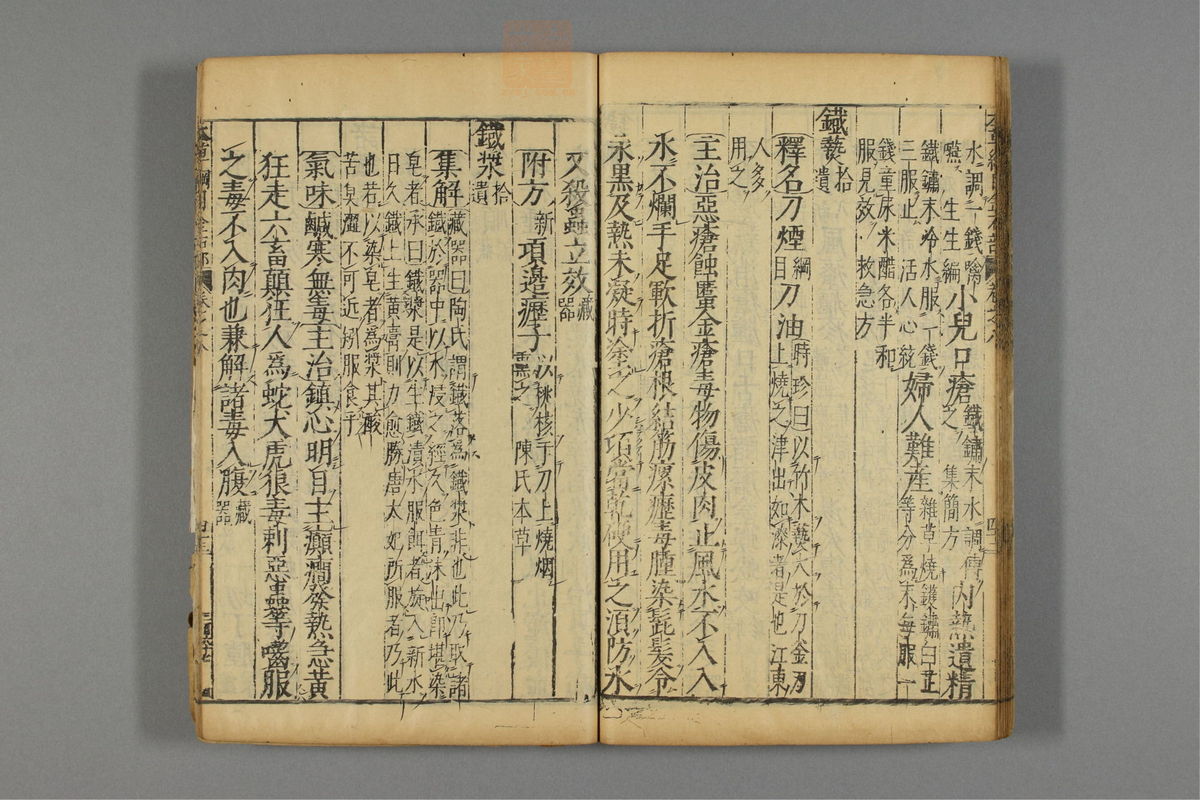 水調二錢噙
嚥 生生編 小兒口瘡 鐵鏽末水調傅之 集簡方 內熱遺精
鐵鏽末冷水服一錢
三服止 活人心統 婦人難產 雜草燒鑊鏽白芷等分為末每服一
錢童尿米醋各半和
服見效 救急方
鐵爇 拾遺
釋名刀煙 綱目 刀油 時珍曰以竹木爇火於刀斧刃上燒之津出如漆者是也江東
人多
用之
主治惡瘡蝕䘌金瘡毒物傷皮肉止風水不入入
水不爛手足皸折瘡根結筋瘰癧毒腫染髭髮令
永黑及熱未凝時塗之少頃當乾硬用之須防水
又殺蟲立效 藏器
附方 新 項邊癧子 以桃核于刀上燒烟熏之 陳氏本草
鐵漿 拾遺
集解 藏器曰陶氏謂鐵落為鐵漿非也此乃取諸
鐵於器中以水浸之經久色青沫出即堪染
皂者承曰鐵漿是以生鐵漬水服餌者旋入新水
日久鐵上生黃膏則力愈勝唐太妃所服者乃此
也若以染皂者為漿其酸
苦臭澀不可近矧服食乎
氣味鹹寒無毒主治鎮心明目主癲癇發熱急黃
狂走六畜顛狂人為蛇犬虎狼毒刺惡蟲等嚙服
之毒不入肉也兼解諸毒入腹 藏器